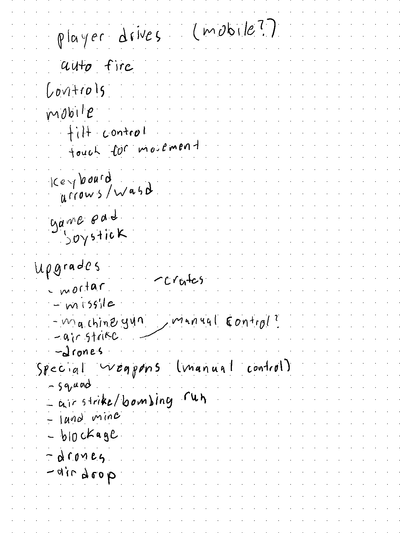 player drives (mobile?)
auto fire
Controls
mobile
tilt control
touch for movement
keyboard
arrows/wasd
game pad
joystick
Upgrades
- mortar
- crates
- missile
- machine gun
- manual control?
- air strike
- drones
Special weapons (manual control)
- squad
- air strike/bombing run
- land mine
- blockage
- drones
- air drop